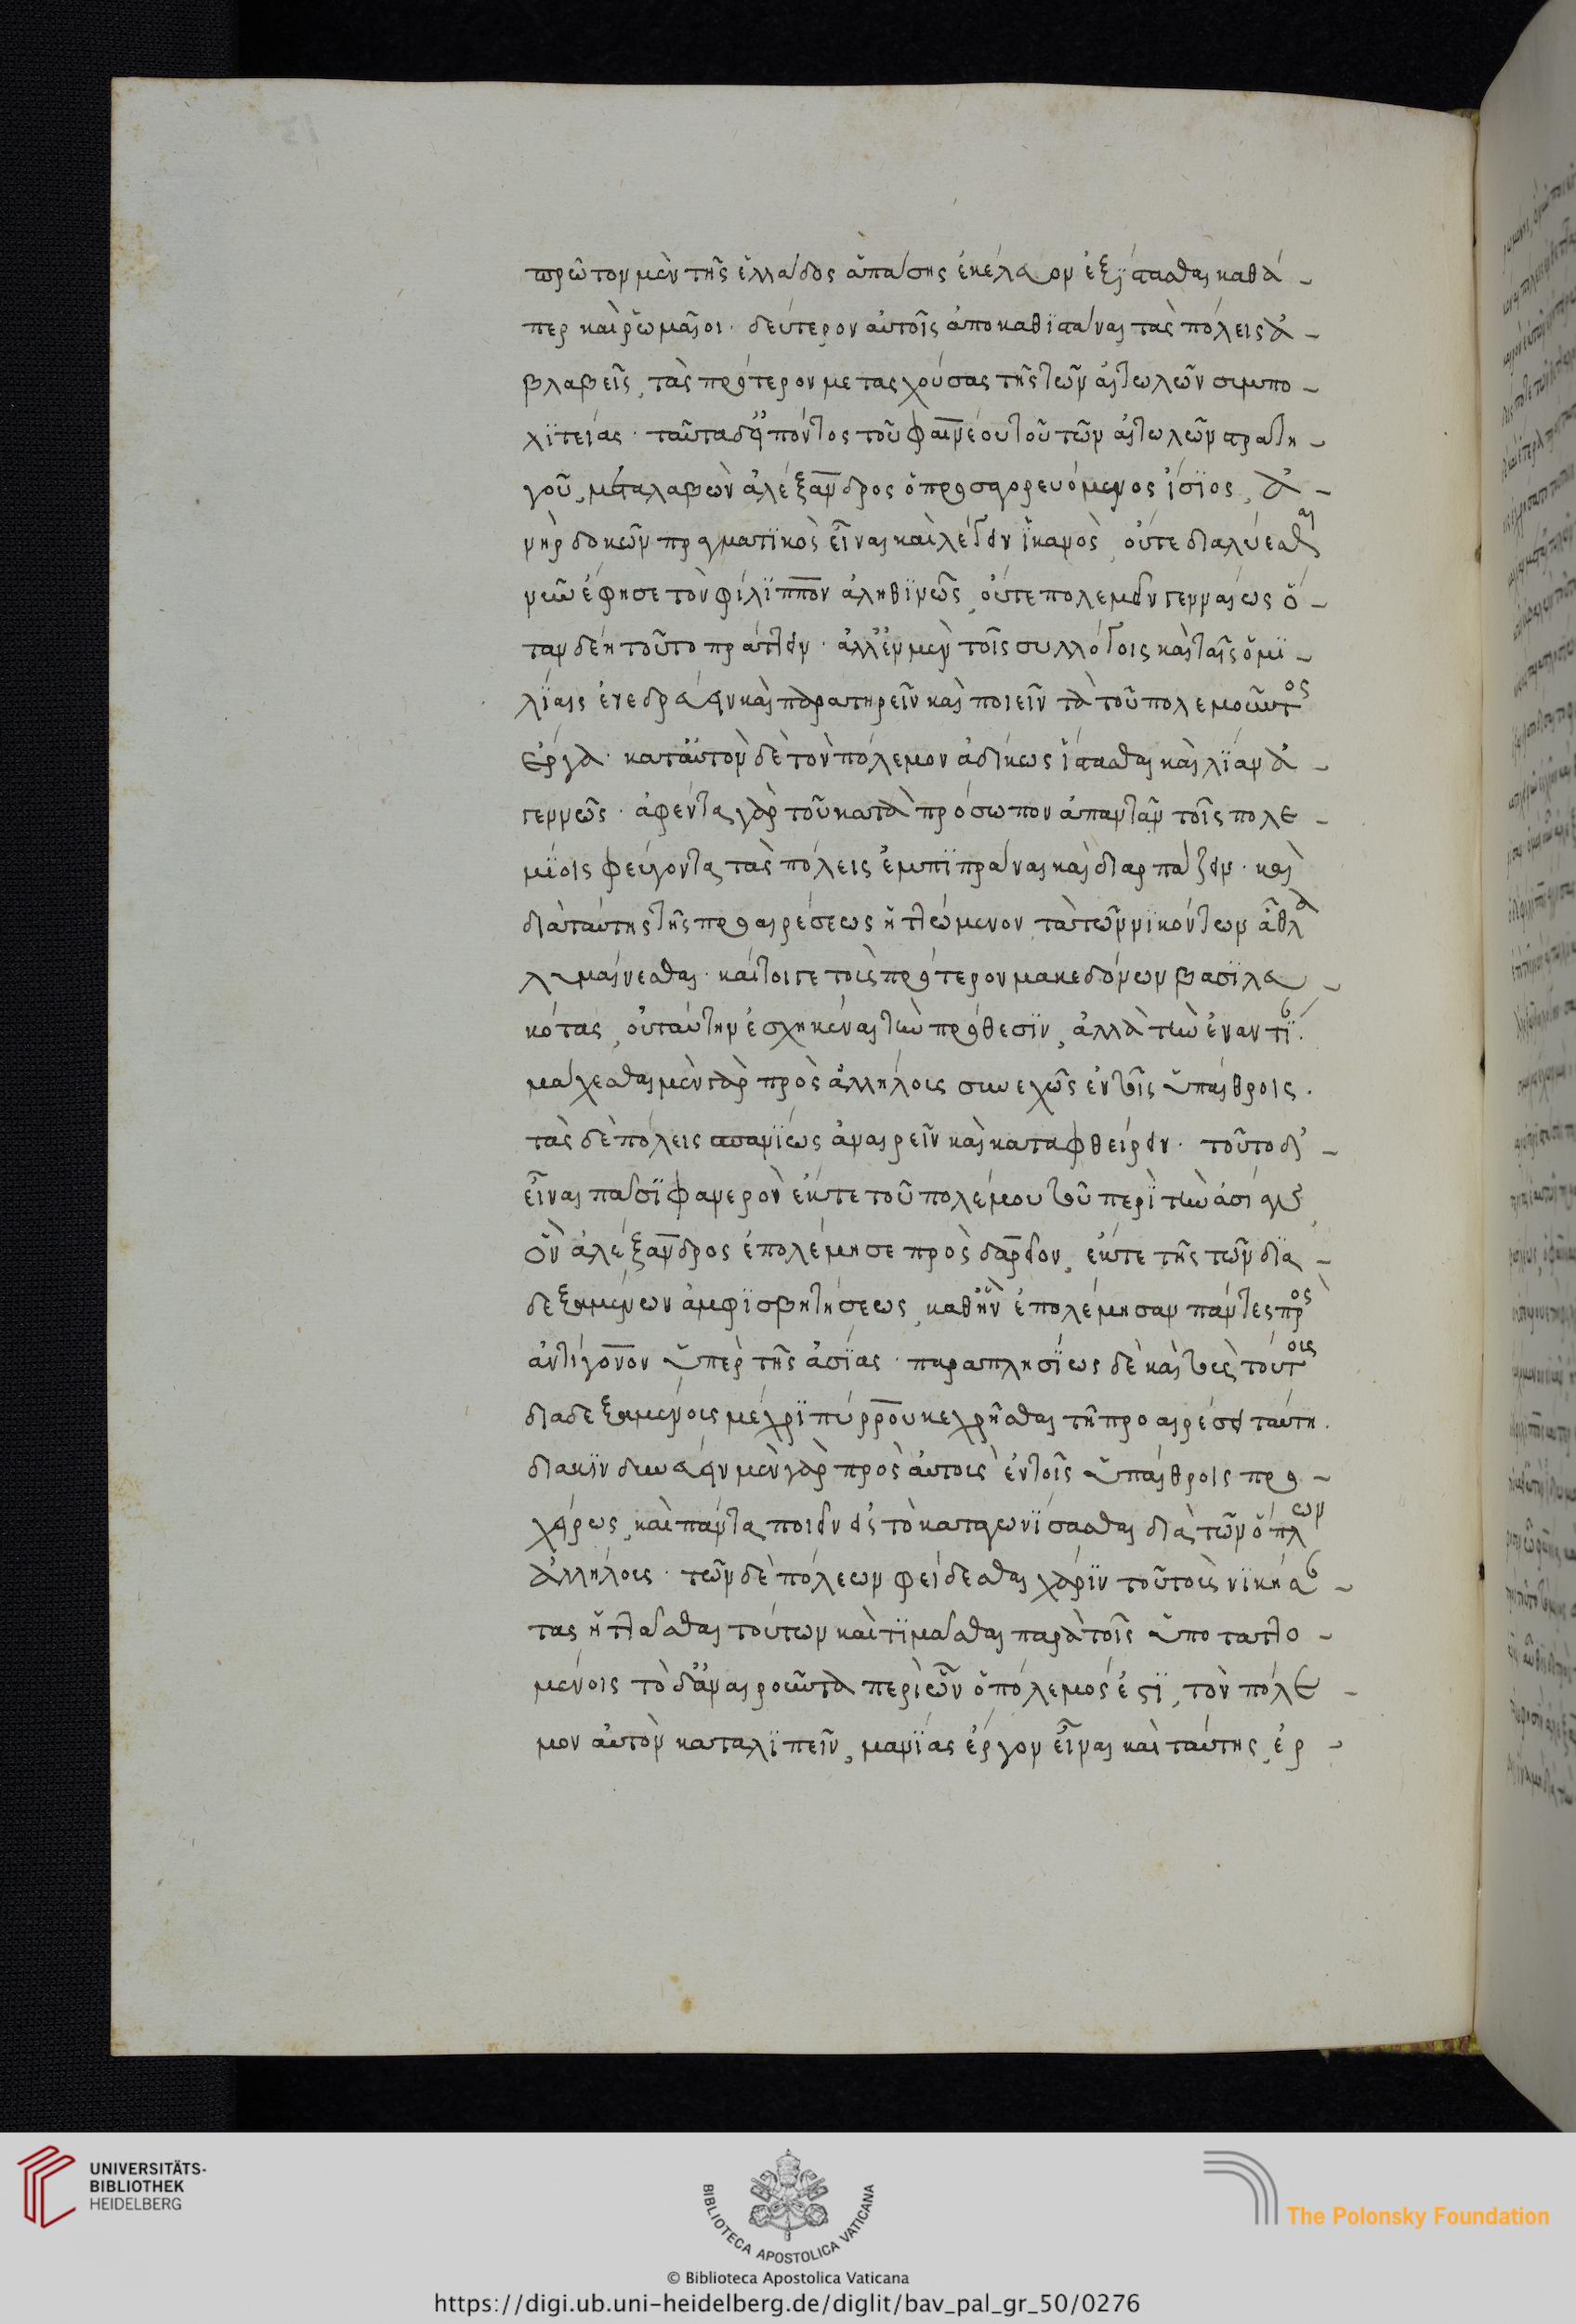 πρῶτον μὲν τῆς ἑλλάδος ἁπάσης ἐκέλευον ἐξίστασθαι καθά-
περ καὶ ῥωμαῖοι· δεύτερον αὐτοῖς ἀποκαθϊστάναι τὰς πόλεις ἀ-
βλαβεῖς, τὰς πρότερον μετασχούσας τῆς τῶν αἰτωλῶν συμπο-
λϊτείας· ταῦτα δ᾽ εἰπόντος τοῦ φαινέου τοῦ τῶν αἰτωλῶν στρατη-
γοῦ, μεταλαβὼν ἀλέξανδρος ὁ προσαγορευόμενος ἴσϊος, ἀ-
νὴρ δοκῶν πραγματϊκὸς εἶναι καὶ λέγειν ἱκανὸς, οὔτε διαλύεσθαι
νῦν ἔφησε τὸν φίλϊππον ἀληθϊνῶς, οὔτε πολεμεῖν γενναίως ὅ-
ταν δέη τοῦτο πράττειν· ἀλλ᾽ ἐν μὲν τοῖς συλλόγοις καὶ ταῖς ὁμϊ-
λίαις ἐνεδρεύειν καὶ παρατηρεῖν καὶ ποιεῖν τὰ τοῦ πολεμοῦντος
ἔργα· κατ᾽ αὐτὸν δὲ τὸν πόλεμον ἀδίκως ἵστασθαι καὶ λίαν ἀ-
γεννῶς· ἀφέντα γὰρ τοῦ κατὰ πρόσωπον ἀπαντᾶν τοῖς πολε-
μίοις φεύγοντα τὰς πόλεις ἐμπϊπράναι καὶ διαρπάζειν· καὶ
διὰ ταύτης τῆς προαιρέσεως ἡττώμενον τὰ τῶν νικόντων ἆθλα
λυμαίνεσθαι· καίτοιγε τοὺς πρότερον μακεδόνων βασϊλευ-
κότας, οὐ ταύτην ἐσχηκέναι τὴν πρόθεσϊν, ἀλλὰ τὴν ἐναντϊ
μάχεσθαι μὲν γὰρ πρὸς ἀλλήλους συνεχῶς ἐν τοῖς ὑπαίθροις.
τὰς δὲ πόλεις σπανϊως ἀναιρεῖν καὶ καταφθείρειν· τοῦτο δ᾽
εἶναι πᾶσϊ φανερὸν ἔκ τε τοῦ πολέμου τοῦ περὶ τὴν ἀσίαν
ὃν ἀλέξανδρος ἐπολέμησε πρὸς δαρεῖον, ἔκ τε τῆς τῶν δϊα-
δεξαμένων ἀμφϊσβητήσεως, καθ᾽ ἣν ἐπολέμησαν πάντες πρὸς
ἀντίγονον ὑπὲρ τῆς ἀσίας· παραπλησϊως δὲ καὶ τοὺς τούτους
διαδεξαμένους μέχρϊ πύρρου κεχρῆσθαι τῆ προαιρέσει ταύτη.
διακϊνδυνεύειν μὲν γὰρ πρὸς αὑτοὺς ἐν τοῖς ὑπαίθροις προ-
χείρως, καὶ πάντα ποιεῖν εἰς τὸ καταγωνϊσασθαι διὰ τῶν ὅπλων
ἀλλήλους· τῶν δὲ πόλεων φείδεσθαι χάρϊν τοῦ τοὺς νϊκήσαν-
τας ἡττᾶσθαι τούτων καὶ τϊμᾶσθαι παρὰ τοῖς ὑποταττο-
μένοις τὸ δ᾽ ἀναιροῦντα περὶ ὧν ὁ πόλεμός ἐστϊ, τὸν πόλε-
μον αὐτὸν καταλϊπεῖν, μανϊας ἔργον εἶναι καὶ ταύτης ἐρ-
UNIVERSITÄTS-
BIBLIOTHEK
HEIDELBERG
BIBLIOTECA APOSTOLICA VATICANA
The Polonsky Foundation
© Biblioteca Apostolica Vaticana
https://digi.ub.uni-heidelberg.de/diglit/bav_pal_gr_50/0276